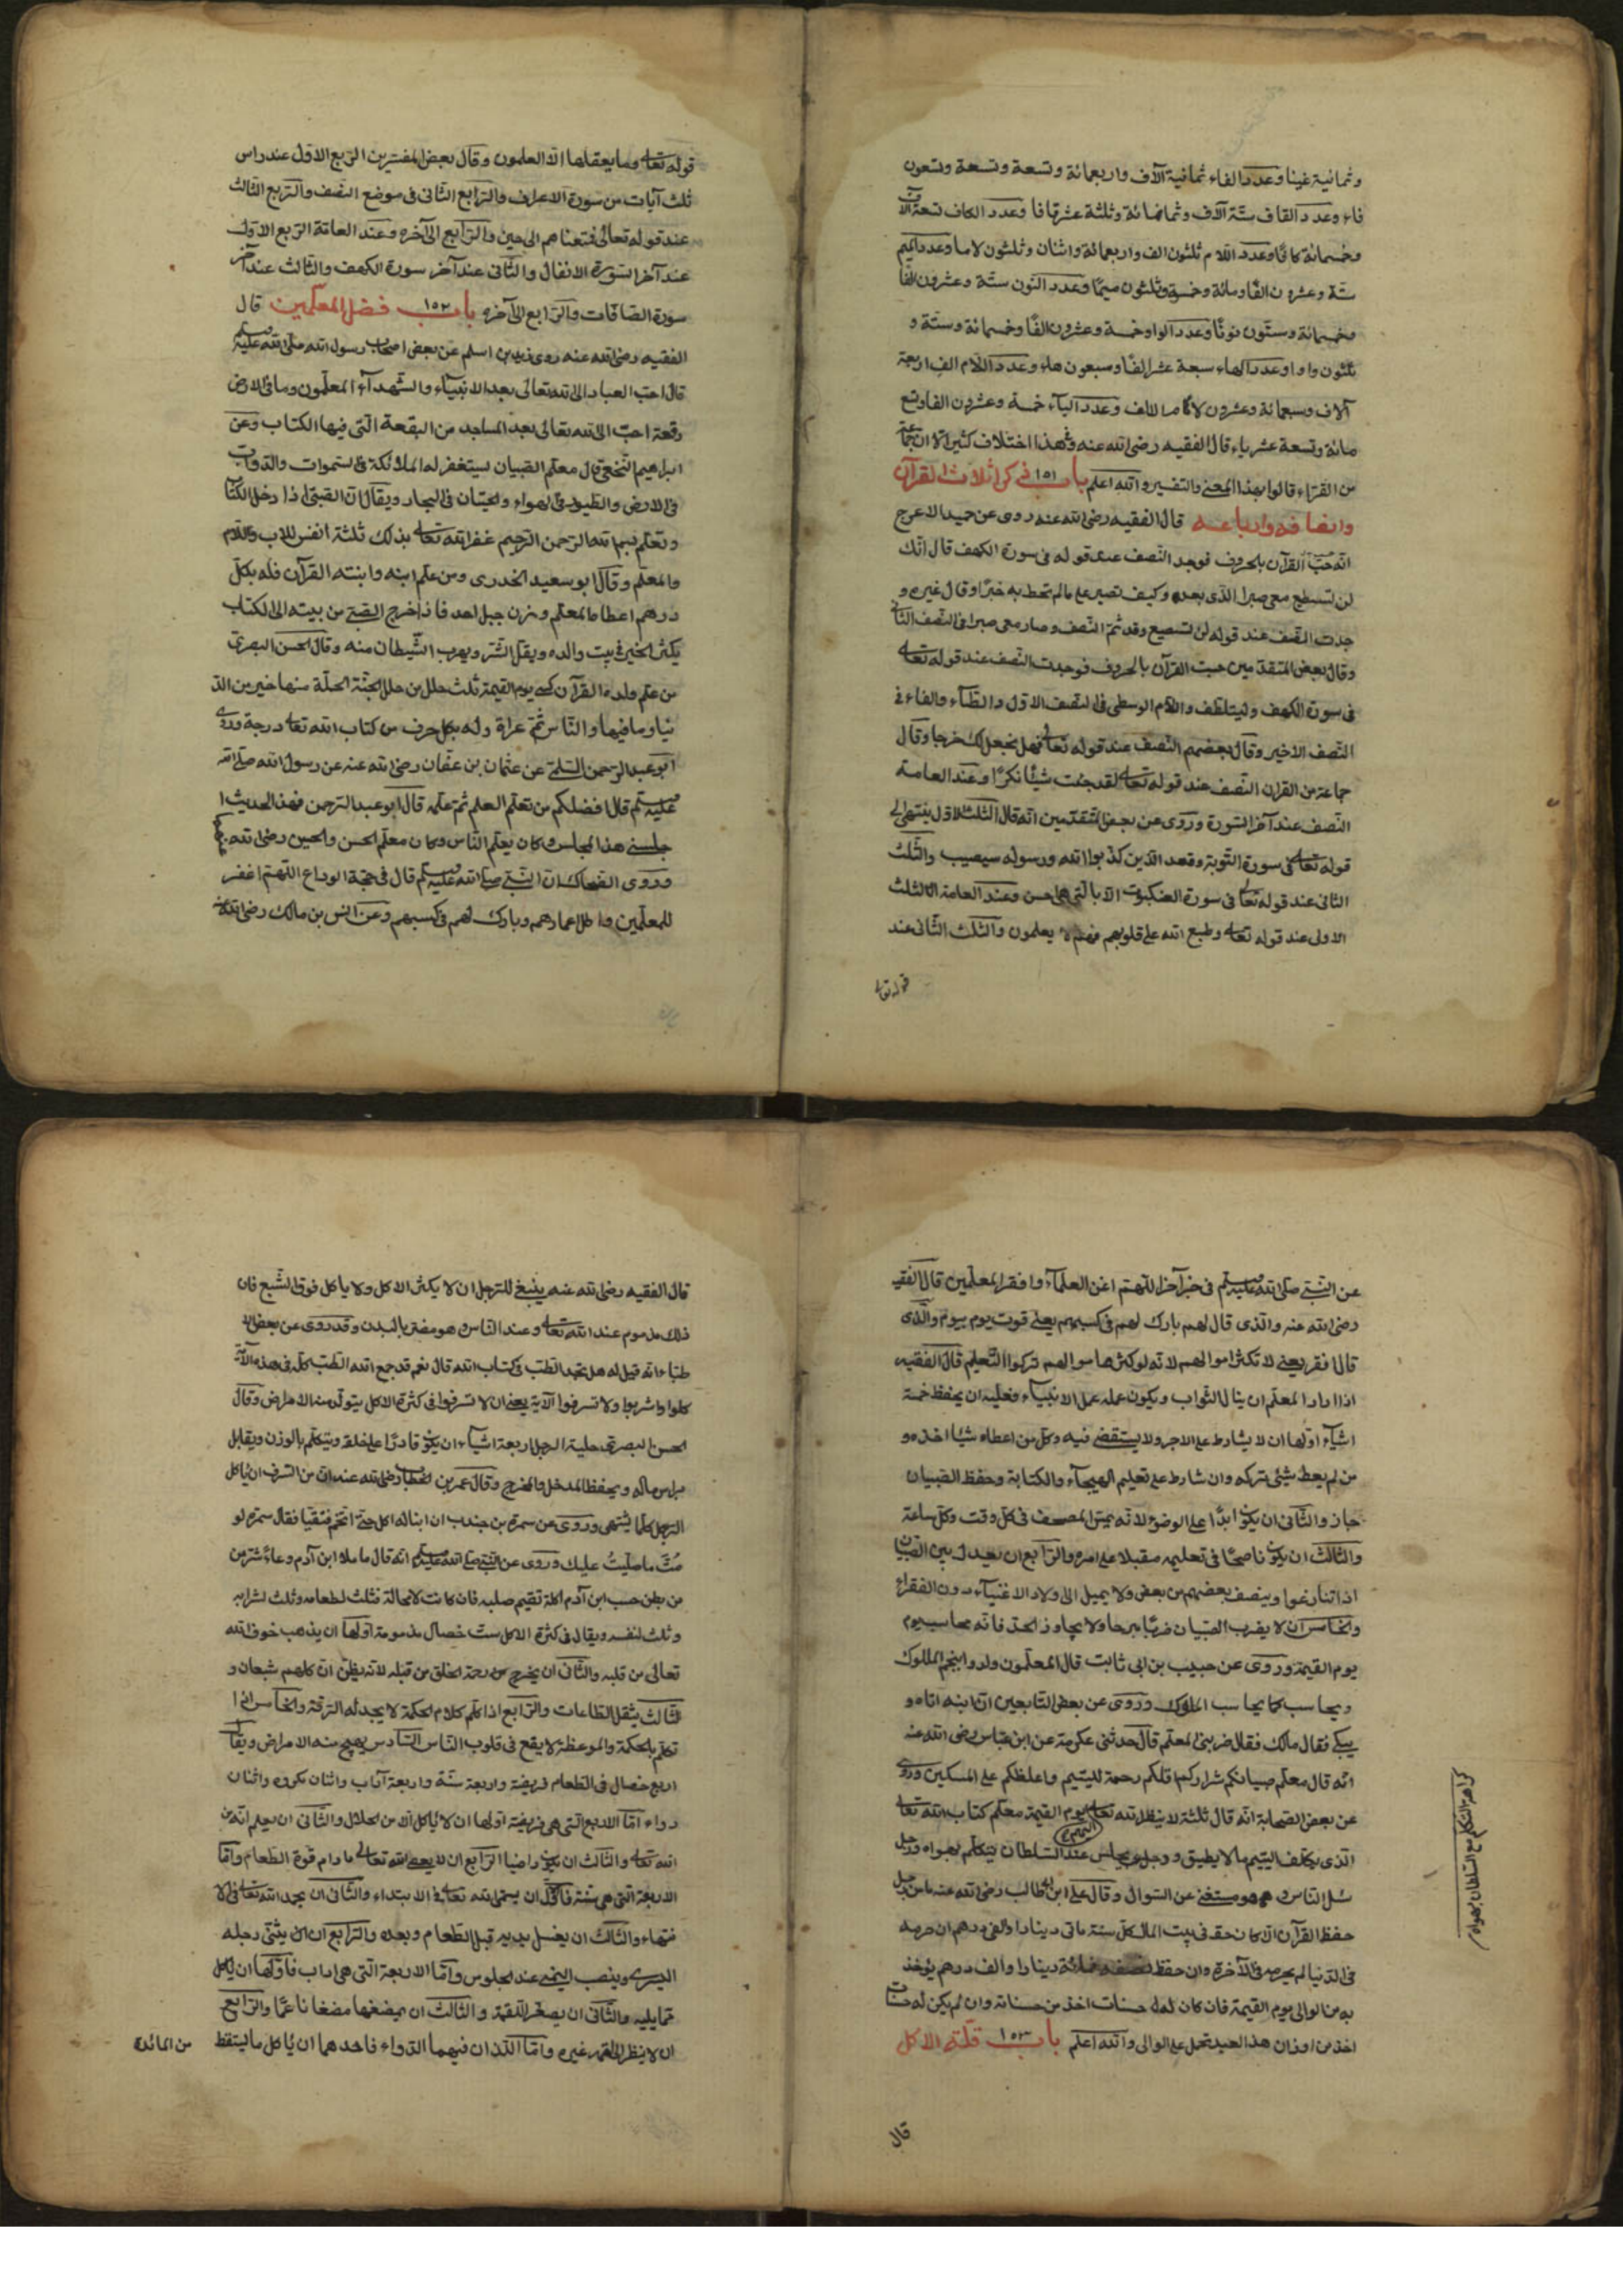 وثمانية غينا وعدد الفاء ثمانية آلاف واربعمائة وتسعة وتسعة وتسعون
فاء وعدد القاف ستة آلاف وثمانمائة وثلثة عشر قافا وعدد الكاف تسعة آلاف
وخمسمائة كافا وعدد اللام ثلثون الف واربعمائة واثنان وثلثون لاما وعدد الميم
ستة وعشرون الفا ومائة وخمسة وثلثون ميما وعدد النون ستة وعشرون الفا
وخمسمائة وستون نونا وعدد الواو خمسة وعشرون الفا وخمسمائة وستة و
ثلثون واوا وعدد الهاء سبعة عشر الفا وسبعون هاء وعدد اللام الف اربعة
آلاف وسبعمائة وعشرون وعدد الياء خمسة وعشرون الفا وتسع
مائة وتسعة عشر ياء قال الفقيه رضى الله عنه وفى هذا اختلاف كثير الا ان جماعة
من القراء قالوا بهذا المعنى والتفسير والله اعلم باب ١٥١ فى ذكر اثلاث القرآن
وانصافه وارباعه قال الفقيه رضى الله عنه روى عن حميد الاعرج
انه حسب القرآن بالحروف فوجد النصف عند قوله فى سورة الكهف قال انك
لن تستطيع معى صبرا الذى بعده وكيف تصبر على ما لم تحط به خبرا وقال غيره و
جدت النصف عند قوله لن تستطيع وقد تم النصف وصار معى صبرا فى النصف الثانى
وقال بعض المتقدمين حسبت القرآن بالحروف فوجدت النصف عند قوله تعالى
فى سورة الكهف وليتلطف واللام الوسطى فى النصف الاول والطاء والفاء فى
النصف الاخير وقال بعضهم النصف عند قوله تعالى فهل نجعل لك خرجا وقال
جماعة من القران النصف عند قوله تعالى لقد جئت شيئا نكرا وعند العامة
النصف عند آخر السورة وروى عن بعض المتقدمين انه قال الثلث الاول ينتهى الى
قوله تعالى فى سورة التوبة وقعد الذين كذبوا الله ورسوله سيصيب والثلث
الثانى عند قوله تعالى فى سورة العنكبوت الا بالتى هى احسن وعند العامة الثلث
الاولى عند قوله تعالى وطبع الله على قلوبهم فهم لا يعلمون والثلث الثانى عند
قوله تعالى
قوله تعالى وما يعقلها الا العلمون وقال بعض المفسرين الربع الاول عند راس
ثلث آيات من سورة الاعراف والرابع الثانى فى موضع النصف والربع الثالث
عند قوله تعالى فمتعناهم الى حين والرابع الى آخره وعند العامة الربع الاول
عند آخر السورة الانفال والثانى عند آخر سورة الكهف والثالث عند آخر
سورة الصافات والرابع الى آخره باب ١٥٢ فضل المعلمين قال
الفقيه رضى الله عنه روى زيد بن اسلم عن بعض اصحاب رسول الله صلى الله عليه وسلم
قال احب العباد الى الله تعالى بعد الانبياء والشهداء المعلمون وما فى الارض
رقعة احب الى الله تعالى بعد المساجد من البقعة التى فيها الكتاب وعن
ابراهيم النخعى قال معلم الصبيان يستغفر له الملائكة فى السموات والدواب
فى الارض والطيور فى الهواء والحيتان فى البحار ويقال ان الصبى اذا دخل الكتاب
وتعلم بسم الله الرحمن الرحيم غفر الله تعالى بذلك ثلثة انفس للاب والام
والمعلم وقال ابو سعيد الخدرى ومن علم ابنه وابنته القرآن فله بكل
درهم اعطاها المعلم وزن جبل احد فاذا خرج الصبى من بيته الى الكتاب
يكثر الخير فى بيت والده ويقل الشر ويهرب الشيطان منه وقال الحسن البصرى
من علم ولده القرآن كسى يوم القيمة ثلث حلل من حلل الجنة الحلة منها خير من الد
نيا وما فيها والناس ثم عراة وله بكل حرف من كتاب الله تعالى درجة وروى
ابو عبد الرحمن السلمى عن عثمان بن عفان رضى الله عنه عن رسول الله صلى الله
عليه وسلم قال افضلكم من تعلم العلم ثم علمه قال ابو عبد الرحمن فهذا الحديث ا
جلسنى هذا المجلس وكان يعلم الناس وكان معلم الحسن والحسين رضى الله عنهم
وروى الضحاك ان النبى صلى الله عليه وسلم قال فى حجة الوداع اللهم اغفر
للمعلمين واطل اعمارهم وبارك لهم فى كسبهم وعن انس بن مالك رضى الله عنه
عن النبى صلى الله عليه وسلم فى خبر آخر اللهم اغن العلماء وافقر المعلمين قال الفقيه
رضى الله عنه والذى قال لهم بارك لهم فى كسبهم يعنى قوت يوم بيوم والذى
قال افقر يعنى لا تكثر اموالهم لانه لو كثرها موالهم تركوا التعليم قال الفقيه
اذا اراد المعلم ان ينال الثواب ويكون عمله عمل الانبياء فعليه ان يحفظ خمسة
اشياء اولها ان لا يشارط على الاجر ولا يستقصى فيه وكل من اعطاه شيئا اخذه و
من لم يعط شئ تركه وان شارط على تعليم الهجاء والكتابة وحفظ الصبيان
جاز والثانى ان يكون ابدا على الوضوء لانه يمس المصحف فى كل وقت وكل ساعة
والثالث ان يكون ناصحا فى تعليمه مقبلا على امره والرابع ان يعدل بين الصبيان
اذا تنازعوا وينصف بعضهم من بعض ولا يميل الى ولاد الاغنياء دون الفقراء
والخامس ان لا يضرب الصبيان ضربا مبرحا ولا يجاوز الحد فانه محاسب يوم
يوم القيمة وروى عن حبيب بن ابى ثابت قال المعلمون ولدوا بنجم الملوك
ويحاسب كما يحاسب الملوك وروى عن بعض التابعين ان ابنه اتاه و
يبكى فقال مالك فقال ضربنى المعلم قال حدثنى عكرمة عن ابن عباس رضى الله عنه
انه قال معلم صبيانكم شراركم اقلكم رحمة لليتيم واغلظكم على المسكين وروى
عن بعض الصحابة انه قال ثلثة لا ينظر الله تعالى اليهم يوم القيمة معلم كتاب الله تعالى
الذى يكلف اليتيم ما لا يطيق ورجل يجلس عند السلطان يتكلم بهواه ورجل
سئل الناس وهو مستغن عن السؤال وقال على ابن ابى طالب رضى الله عنه ما من رجل
حفظ القرآن الا كان حقه فى بيت المال كل سنة مائتى دينارا والفى درهم ان حرمه
فى الدنيا لم يحرمه فى الآخرة وان حفظ نصفه فمائة دينارا والف درهم يؤخذ
به من الوالى يوم القيمة فان كان له حسنات اخذ من حسناته وان لم يكن له حسنات
اخذ من اوزان هذا العبد تحمل على الوالى والله اعلم باب ١٥٣ قلة الاكل
كراهة التكلم مع السلطان بهواه
قال
قال الفقيه رضى الله عنه ينبغى للرجل ان لا يكثر الاكل ولا ياكل فوق الشبع فان
ذلك مذموم عند الله تعالى وعند الناس وهو مضر بالبدن وقد روى عن بعض الا
طباء انه قيل له هل تجد الطب فى كتاب الله قال نعم قد جمع الله الطب كله فى هذه الآية
كلوا واشربوا ولا تسرفوا الآية يعنى ان لا تسرفوا فى كثرة الاكل يتولد منه الامراض وقال
الحسن البصرى حلية الرجل اربعة اشياء ان يكون قادرا على خلقه ويتكلم بالوزن ويقابل
براس ماله ويحفظ المدخل والمخرج وقال عمر بن الخطاب رضى الله عنه ان من السرف ان ياكل
الرجل كلما يشتهى وروى عن سمرة بن جندب ان ابنا له اكل حتى اتخم فتقيا فقال سمرة لو
مت ما صليت عليك وروى عن النبى صلى الله عليه وسلم انه قال ما ملا ابن آدم وعاء شر من
من بطن حسب ابن آدم اكلة تقيم صلبه فان كانت لا محالة فثلث لطعامه وثلث لشرابه
وثلث لنفسه ويقال فى كثرة الاكل ست خصال مذمومة اولها ان يذهب خوف الله
تعالى من قلبه والثانى ان يخرج من رحمة الخلق من قبله لانه يظن ان كلهم شبعان و
الثالث يثقل الطاعات والرابع اذا كلم كلام الحكمة لا يجد له الرقة والخامس اذا
تكلم بالحكمة والموعظة لا يقع فى قلوب الناس السادس يهيج منه الامراض ويقال
اربع خصال فى الطعام فريضة واربعة سنة واربعة آداب واثنان مكروه واثنان
دواء اما الاربع التى هى فريضة اولها ان لا ياكل الا من الحلال والثانى ان يعلم انه من
الله تعالى والثالث ان يكون راضيا الرابع ان لا يعصى الله تعالى ما دام قوة الطعام واما
الاربعة التى هى سنة فاول ان يسمى الله تعالى فى الابتداء والثانى ان يحمد الله تعالى فى الا
نتهاء والثالث ان يغسل يديه قبل الطعام وبعده والرابع ان يثنى رجله
اليسرى وينصب اليمنى عند الجلوس واما الاربعة التى هى اداب فاولها ان ياكل
مما يليه والثانى ان يصغر اللقمة والثالث ان يمضغها مضغا ناعما والرابع
ان لا ينظر الى لقمة غيره واما اللذان فيهما الدواء فاحدهما ان ياكل ما يسقط
من المائدة